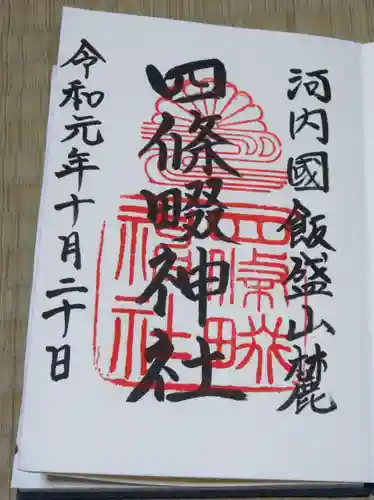 河内國飯盛山麓
四條畷神社
令和元年十月二十日
四條畷
神社